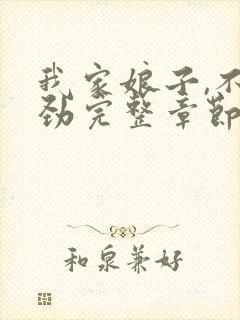 我家娘子,不
劲完整章節
和泉兼好